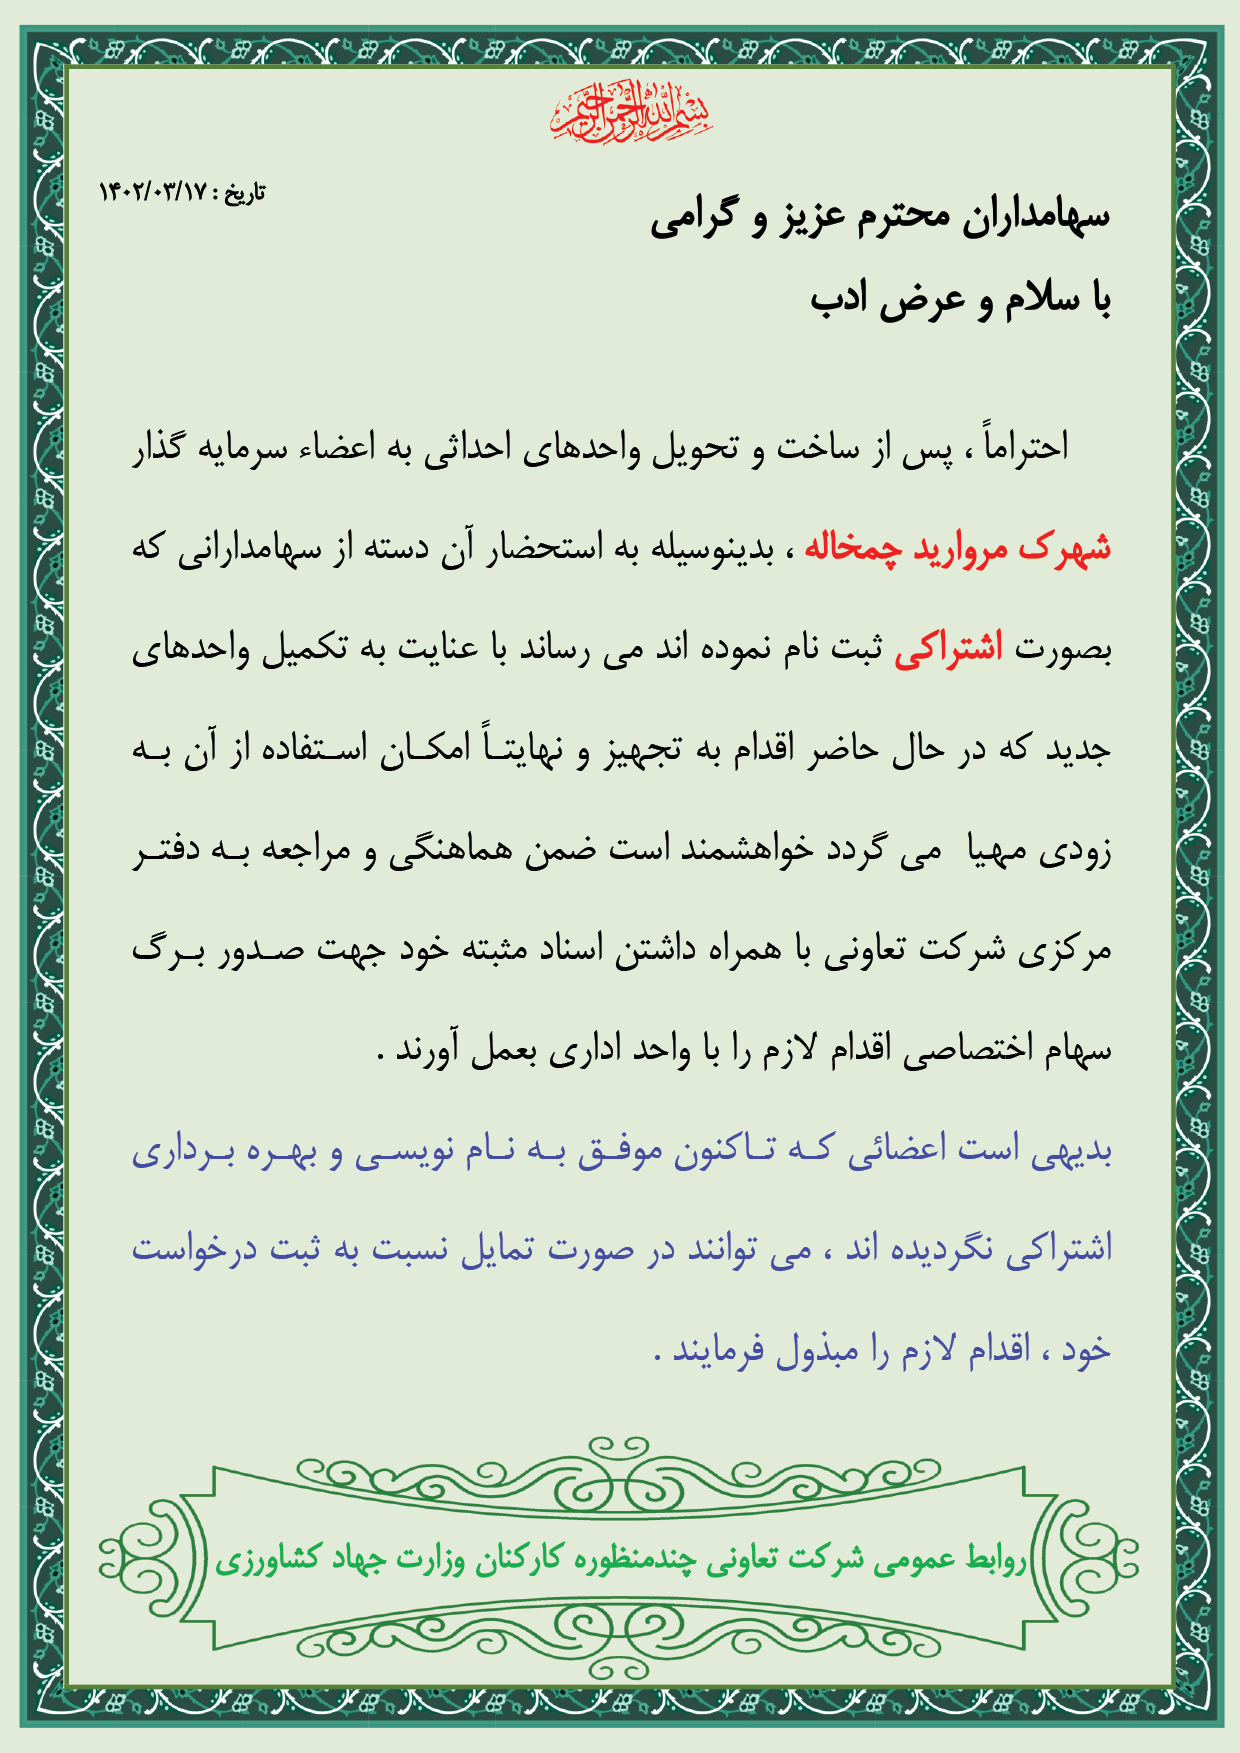 بسم الله الرحمن الرحیم
تاریخ : ۱۴۰۲/۰۳/۱۷
سهامداران محترم عزیز و گرامی
با سلام و عرض ادب
احتراماً ، پس از ساخت و تحویل واحدهای احداثی به اعضاء سرمایه گذار
شهرک مروارید چمخاله ، بدینوسیله به استحضار آن دسته از سهامدارانی که
بصورت اشتراکی ثبت نام نموده اند می رساند با عنایت به تکمیل واحدهای
جدید که در حال حاضر اقدام به تجهیز و نهایتـاً امکـان اسـتفاده از آن بـه
زودی مهیا می گردد خواهشمند است ضمن هماهنگی و مراجعه بـه دفتـر
مرکزی شرکت تعاونی با همراه داشتن اسناد مثبته خود جهت صـدور بـرگ
سهام اختصاصی اقدام لازم را با واحد اداری بعمل آورند .
بدیهی است اعضائی کـه تـاکنون موفـق بـه نـام نویسـی و بهـره بـرداری
اشتراکی نگردیده اند ، می توانند در صورت تمایل نسبت به ثبت درخواست
خود ، اقدام لازم را مبذول فرمایند .
روابط عمومی شرکت تعاونی چندمنظوره کارکنان وزارت جهاد کشاورزی